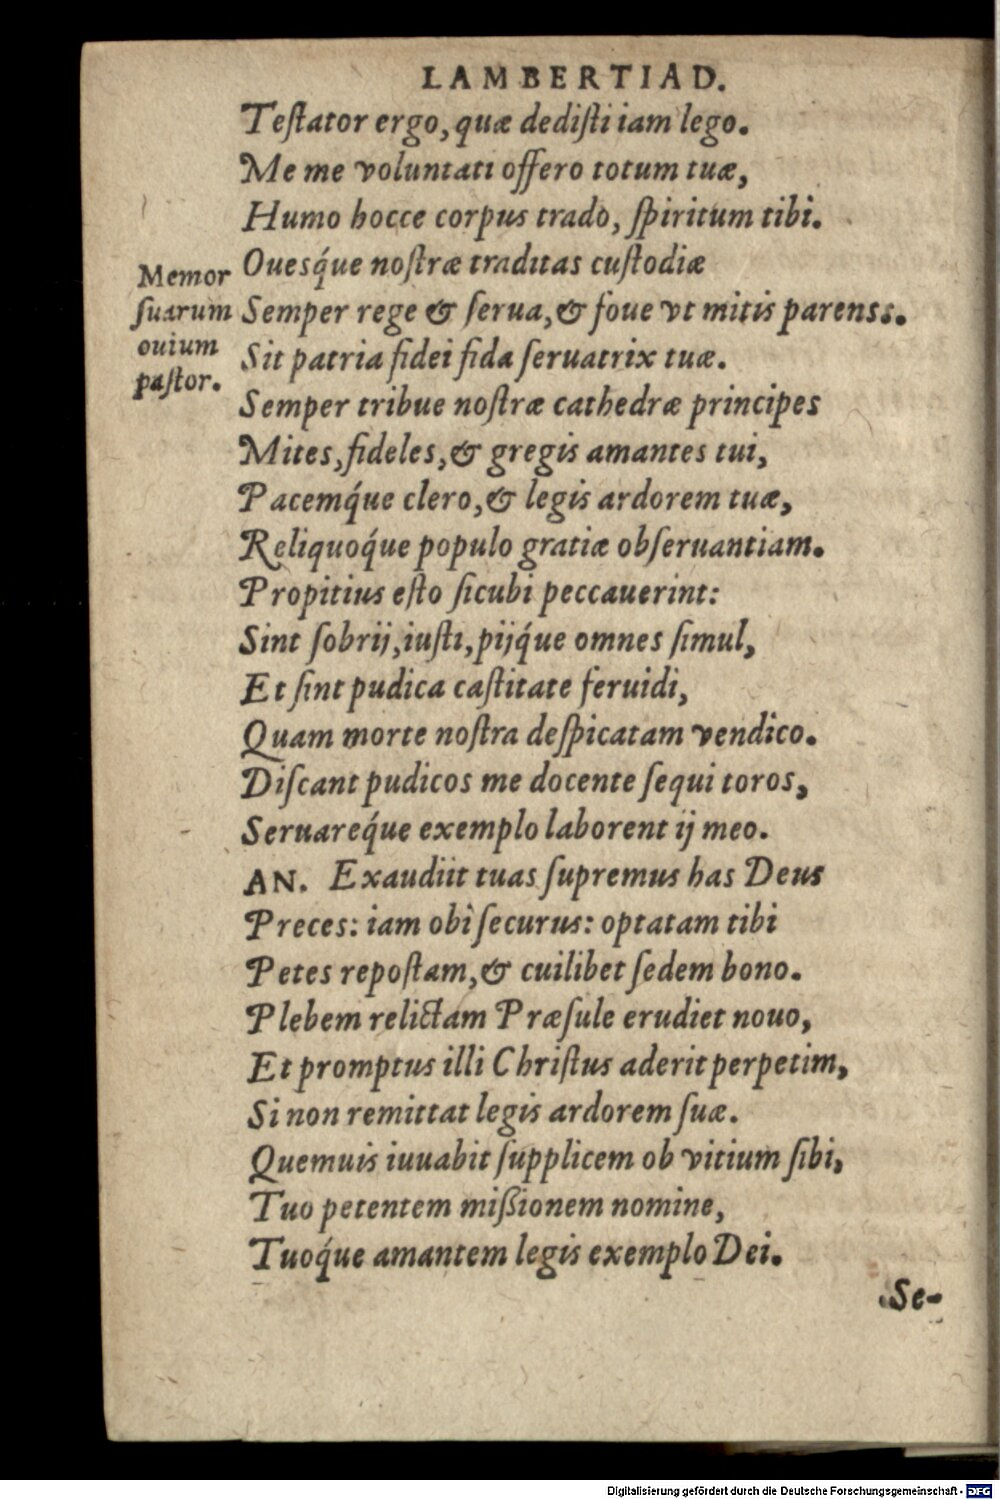 LAMBERTIAD.
Teſtator ergo, quæ dediſti iam lego.
Me me voluntati offero totum tuæ,
Humo hocce corpus trado, ſpiritum tibi.
Oueſq́ue noſtræ traditas cuſtodiæ
Semper rege & ſerua, & foue vt mitis parenss.
Sit patria fidei fida ſeruatrix tuæ.
Semper tribue noſtræ cathedræ principes
Mites, fideles, & gregis amantes tui,
Pacemq́ue clero, & legis ardorem tuæ,
Reliquoq́ue populo gratiæ obſeruantiam.
Propitius eſto ſicubi peccauerint:
Sint ſobrij, iuſti, pijq́ue omnes ſimul,
Et ſint pudica caſtitate feruidi,
Quam morte noſtra deſpicatam vendico.
Diſcant pudicos me docente ſequi toros,
Seruareq́ue exemplo laborent ij meo.
AN. Exaudiit tuas ſupremus has Deus
Preces: iam obì ſecurus: optatam tibi
Petes repoſtam, & cuilibet ſedem bono.
Plebem relictam Præſule erudiet nouo,
Et promptus illi Chriſtus aderit perpetim,
Si non remittat legis ardorem ſuæ.
Quemuis iuuabit ſupplicem ob vitium ſibi,
Tuo petentem miſsionem nomine,
Tuoq́ue amantem legis exemplo Dei.
Se-
Memor
ſuarum
ouium
paſtor.
Digitalisierung gefördert durch die Deutsche Forschungsgemeinschaft - DFG